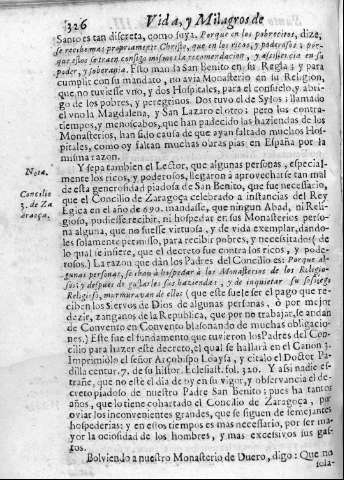 326
Vida, y Milagros de
Santo es tan discreta, como suya. Porque en los pobrecitos, dize,
se recibe mas propriamente Christo, que en los ricos, y poderosos; por-
que ellos se traen consigo mismos la recomendacion, y assistencia en su
poder, y soberania. Esto manda San Benito en su Regla; y para
cumplir con su mandato, no avia Monasterio en su Religion,
que no tuviesse vno, y dos Hospitales, para el consuelo, y abri-
go de los pobres, y peregrinos. Dos tuvo el de Sylos: llamado
el vno la Magdalena, y San Lazaro el otro; pero los contra-
tiempos, y menoscabos, que han padecido las haziendas de los
Monasterios, han sido causa de que ayan faltado muchos Hos-
pitales, como oy faltan muchas obras pias en España por la
misma razon.
Nota.
Y sepa tambien el Lector, que algunas personas, especial-
mente los ricos, y poderosos, llegaron à aprovecharse tan mal
Concilio
3. de Za
ragoça.
de esta generosidad piadosa de San Benito, que fue necessario,
que el Concilio de Zaragoça celebrado à instancias del Rey
Egica en el año de 690. mandasse, que ningun Abad, ni Reli-
gioso, pudiesse recibir, ni hospedar en sus Monasterios perso-
na alguna, que no fuesse virtuosa, y de vida exemplar, dando-
les solamente permisso, para recibir pobres, y necessitados (de
lo qual se infiere, que el decreto fue contra los ricos, y pode-
rosos.) La razon que dàn los Padres del Concilio es: Porque al-
gunas personas, se iban à hospedar à los Monasterios de los Religio-
sos; y despues de gastarles sus haziendas, y de inquietar su sossiego
Religioso, murmuravan de ellos (que este suele ser el pago que re-
ciben los Siervos de Dios de algunas personas, ò por mejor
dezir, zanganos de la Republica, que por no trabajar, se andan
de Convento en Convento blasonando de muchas obligacio-
nes.) Este fue el fundamento que tuvieron los Padres del Con-
cilio para hazer este decreto, el qual se hallarà en el Canon 3.
Imprimiòlo el señor Arçobispo Loaysa, y citalo el Doctor Pa-
dilla centur. 7. de su histor. Eclesiast. fol. 320. Y assi nadie es-
trañe, que no estè el dia de oy en su vigor, y observancia el de-
creto piadoso de nuestro Padre San Benito; pues ha tantos
años, que lo tiene cohartado el Concilio de Zaragoça, por
oviar los inconvenientes grandes, que se siguen de semejantes
hospederias: y en estos tiempos es mas necessario, por ser ma-
yor la ociosidad de los hombres, y mas excessivos sus gas-
tos.
Bolviendo à nuestro Monasterio de Duero, digo: Que no
sola-